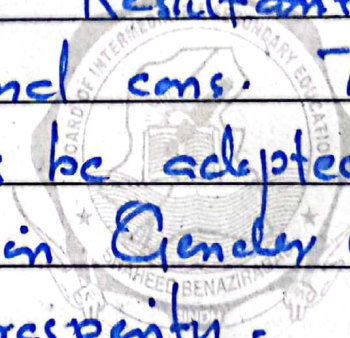 Resultant
nd cons.
be adopted
in Gender
rosperity.
BOARD OF INTERMEDIATE SECONDARY EDUCATION
SHAHEED BENAZIRABAD
SINDH